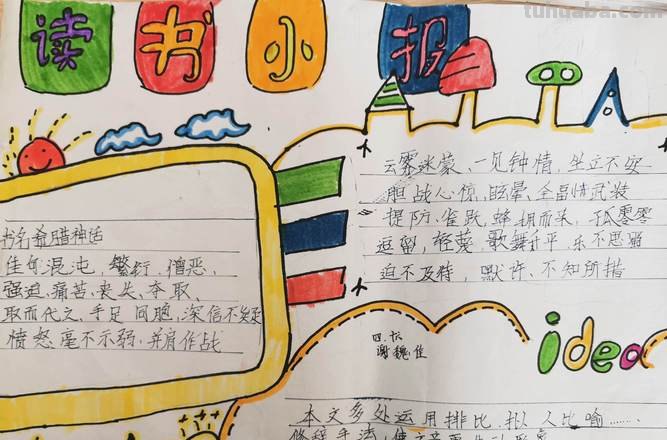 tuhuaba.com
读书小报
书名希腊神话
佳句混沌、繁衍、憎恶、
强迫、痛苦、丧失、夺取、
取而代之、手足同胞、深信不疑
愤怒毫不示弱、并肩作战
云雾迷蒙、一见钟情、坐立不安
胆战心惊、眩晕、全副武装
提防、雀跃、蜂拥而来、孤零零
逗留、歌舞升平、乐不思蜀
迫不及待、默许、不知所措
谢魏佳
idea
本文多处运用排比、拟人比喻……
修辞手法,使文章更